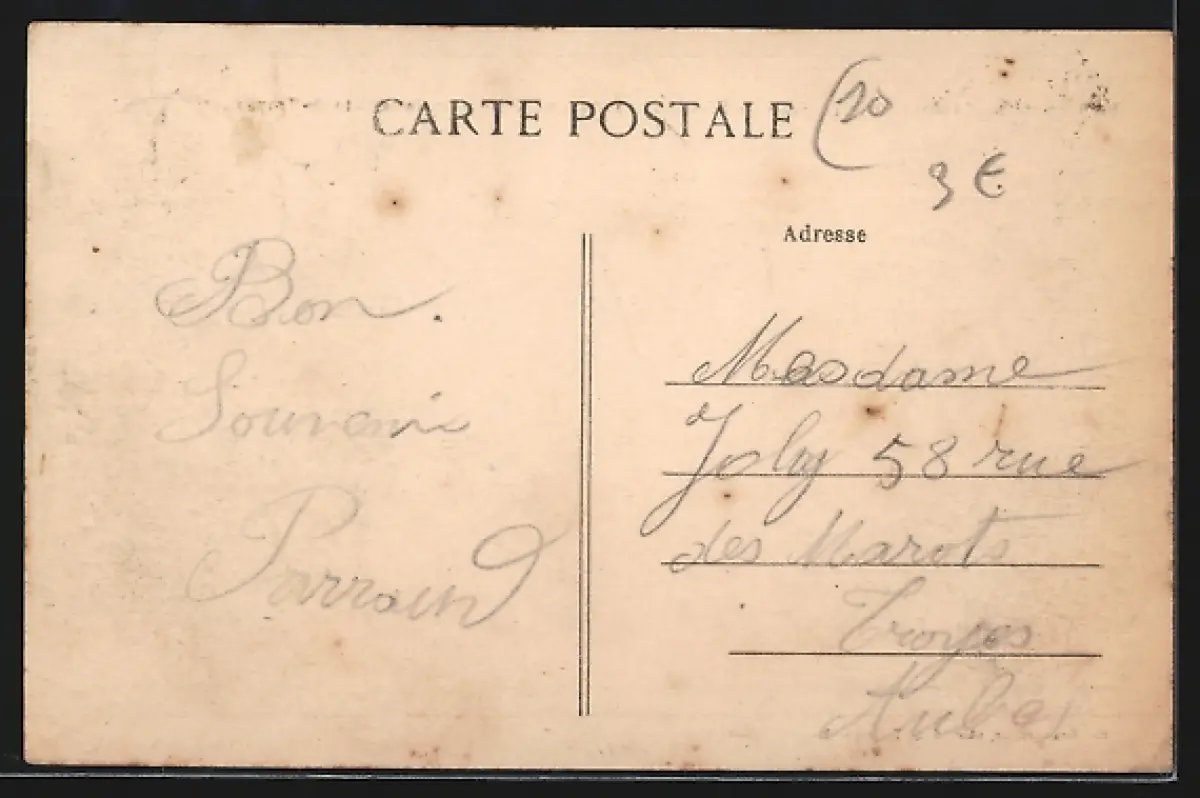 CARTE POSTALE
(20
3 €
Adresse
Bon.
Souvenir
Parrain
Masdame
Joly 58 rue
des Marots
Troyes
Aube